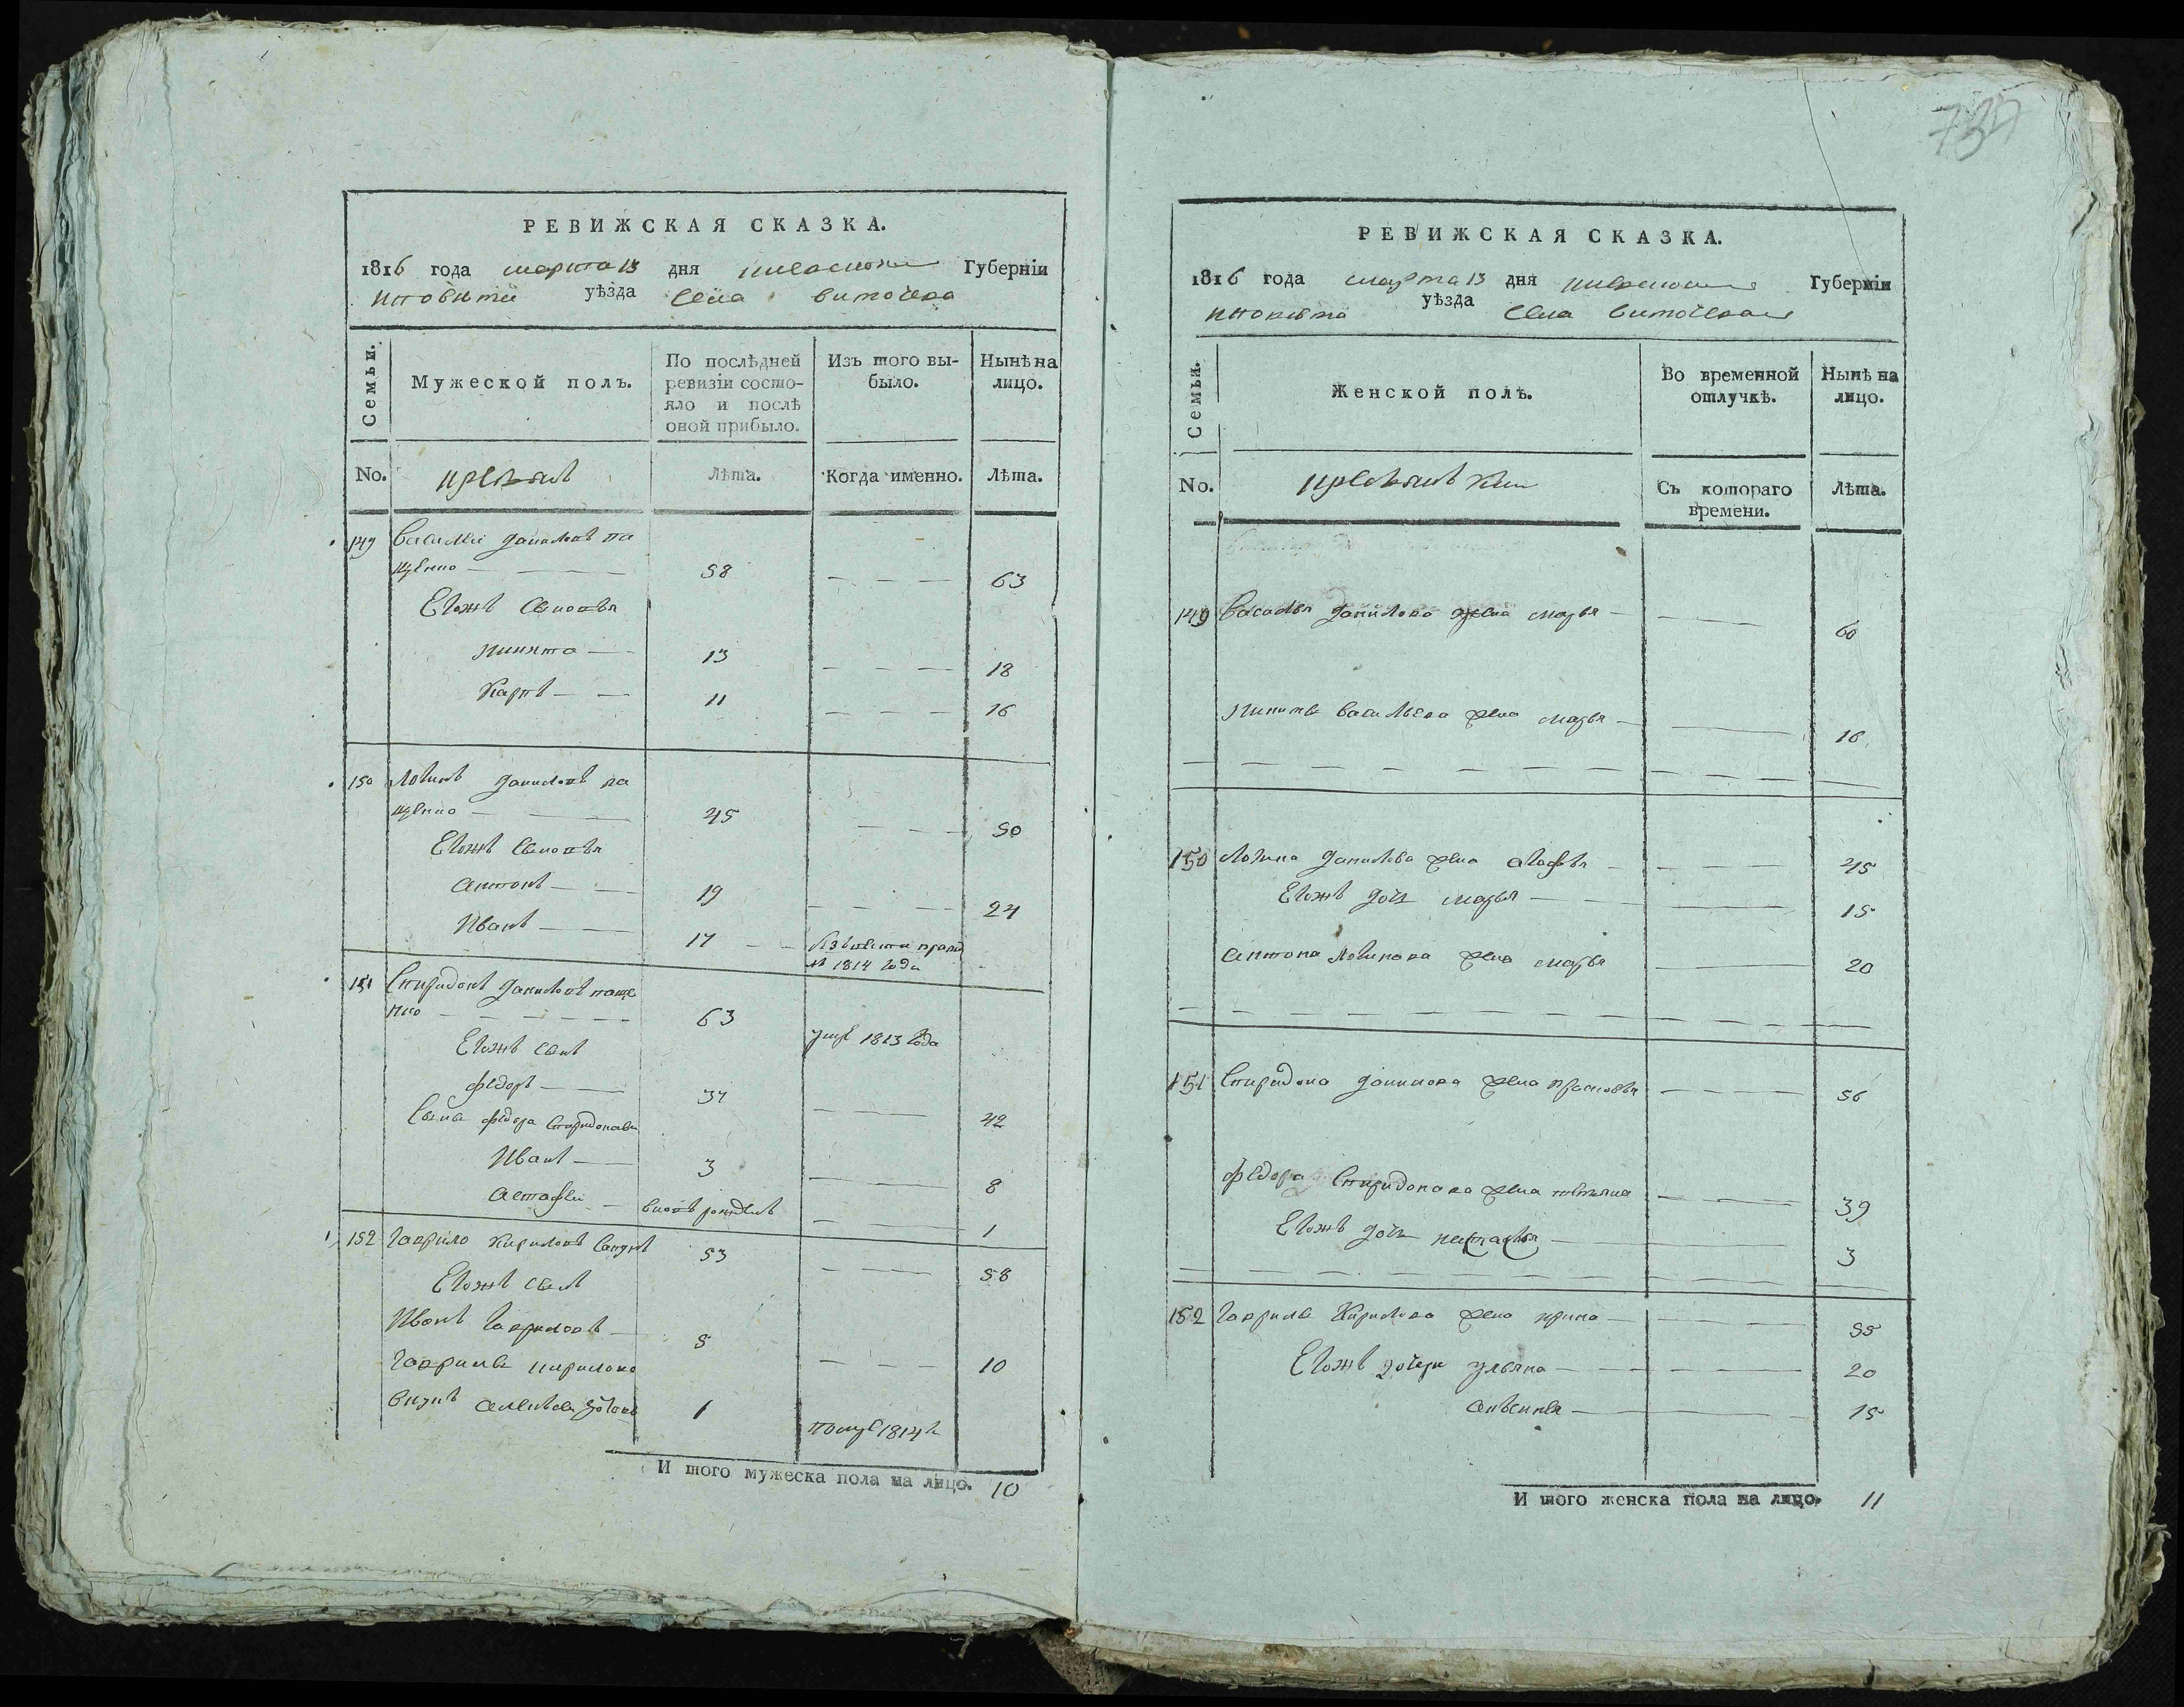 734
РЕВИЖСКАЯ СКАЗКА.
1816 года марта 13 дня Губерніи
уѣзда села
Семьи.
Мужеской полъ.
По послѣдней ревизіи состо-
яло и послѣ
оной прибыло.
Изъ того вы-
было.
Нынѣ на
лицо.
No.
Лѣта.
Когда именно.
Лѣта.
149 Василей Даниловъ па
щенко — — 58 — — — 63
Егожъ сыновья
Никита — 13 — — — 18
Карпъ — — 11 — — — 16
150 Логинъ Даниловъ па
щенко — — 45 — — — 50
Егожъ сыновья
Антонъ — — 19 — — — 24
Иванъ — — 17 — —
1814 года
151 Спиридонъ Даниловъ паще
нко — — — — — 63 умре 1813 года
Егожъ сынъ
Федоръ — — 37 — 42
Сыны Федора Спиридонава
Иванъ — 3 — 8
Астафеи — вновь рожденъ — 1
152 Гаврило Кириловъ 53 — — — 58
Егожъ сынъ
Иванъ Гавриловъ — 5 — — — 10
Гаврилы Кирилова
внукъ 1 помре 1814 г
И того мужеска пола на лицо. 10
РЕВИЖСКАЯ СКАЗКА.
1816 года марта 13 дня Губерніи
уѣзда села
Семьи.
Женской полъ.
Во временной
отлучкѣ.
Нынѣ на
лицо.
No.
Съ котораго
времени.
Лѣта.
149 Василья Данилова жена Марья — — — 60
Никиты Васильева жена Марья — — 18
150 Логина Данилова жена Агафья — — — 45
Егожъ дочь Марья — — — 15
Антона Логинова жена Марья — 20
151 Спиридона Данилова жена Прасковья — — — 56
Федора Спиридонава жена Татьяна — — — 39
Егожъ дочь Настасья — — 3
152 Гаврилы Кирилова жена Ирина — — — — 55
Егожъ дочери Ульяна — — — 20
— — 15
И того женска пола на лицо. 11